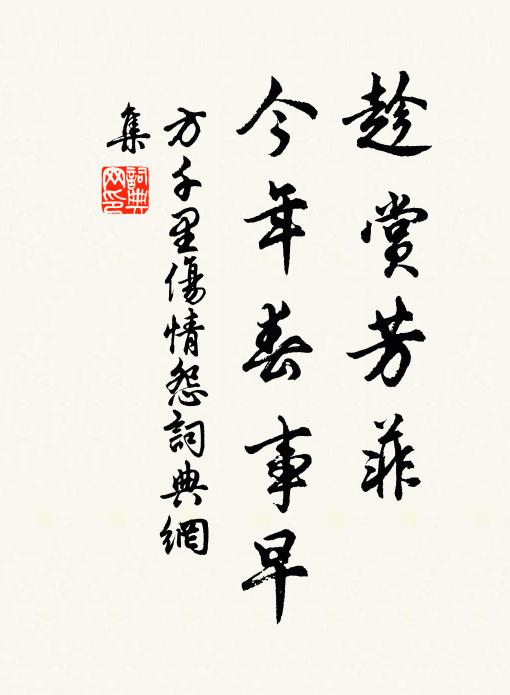 趁賞芳菲
今年春事早
方千里傷情怨詞典網
集
詞典
网印